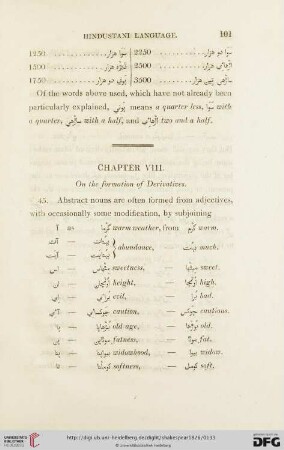 HINDUSTANI LANGUAGE. 101
1250 سوا هزار 2250 سوا دو هزار
1500 ڈیڑھ هزار 2500 اڑھائی هزار
1750 پونی دو هزار 3500 ساڑھی تین هزار
Of the words above used, which have not already been
particularly explained, پونی means a quarter less, سوا with
a quarter, ساڑھی with a half, and اڑھائی two and a half.
CHAPTER VIII.
On the formation of Derivatives.
45. Abstract nouns are often formed from adjectives,
with occasionally some modification, by subjoining
ا as گرما warm weather, from گرم warm.
abundance, بہت much.
س — مٹھاس sweetness, — میٹھا sweet.
height, — اونچا high.
ی — برائی evil, — برا bad.
caution, — چوکس cautious.
پا — بڑھاپا old age, — بوڑھا old.
fatness, — موٹا fat.
widowhood, — widow.
تا — کوملتا softness, — کومل soft.
http://digi.ub.uni-heidelberg.de/diglit/shakespear1826/0113
© Universitätsbibliothek Heidelberg
gefördert durch die
DFG
UNIVERSITÄTS-
BIBLIOTHEK
HEIDELBERG